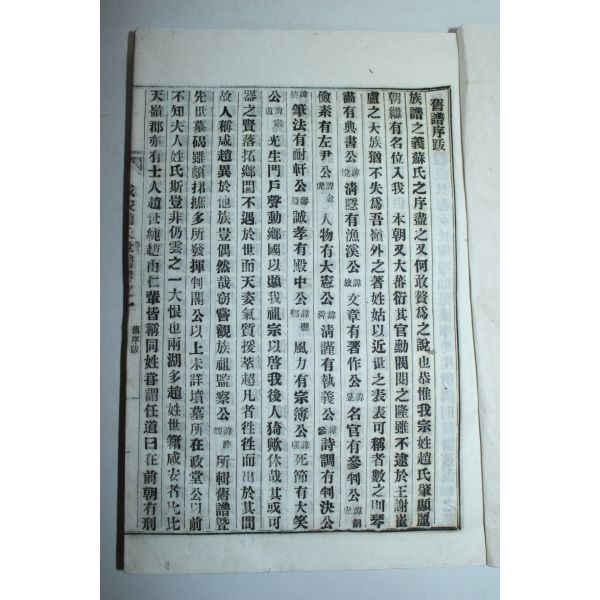 舊譜序跋
族譜之義蘇氏之序盡之又何敢贅爲之說也恭惟我宗姓趙氏肇顯麗
朝繼有名位入我 本朝又大蕃衍其官勳閥閱之隆雖不逮於王謝崔
盧之大族猶不失爲吾嶺外之著姓姑以近世之表表可稱者數之則琴
書有典書公諱虎淸隱有漁溪公諱旅文章有著作公諱昱名官有參判公諱銅虎
儉素有左尹公諱金虎人物有大憲公諱舜淸謹有執義公諱參詩調有判決公
諱績筆法有耐軒公諱壽萬誠孝有殿中公諱棚風力有宗簿公諱瑛死節有大笑
公諱宗道光生門戶聲動鄕國以顯我祖宗以啓我後人猗歟休哉其或可
器之賢落拓鄕閭不遇於世而天姿氣質拔萃超凡者徃徃而出於其間
故人稱咸趙異於他族豈偶然哉窃甞觀族祖監察公諱所輯舊譜曁
先世墓碣雖頗捃摭多所發揮判閣公以上未詳墳墓所在政堂公以前
不知夫人姓氏斯豈非仍雲之一大恨也兩湖多趙姓世籍咸安者比比
天嶺郡亦有士人趙世純趙由仁輩皆稱同姓甞謂任道曰在前朝有刑
舊序跋